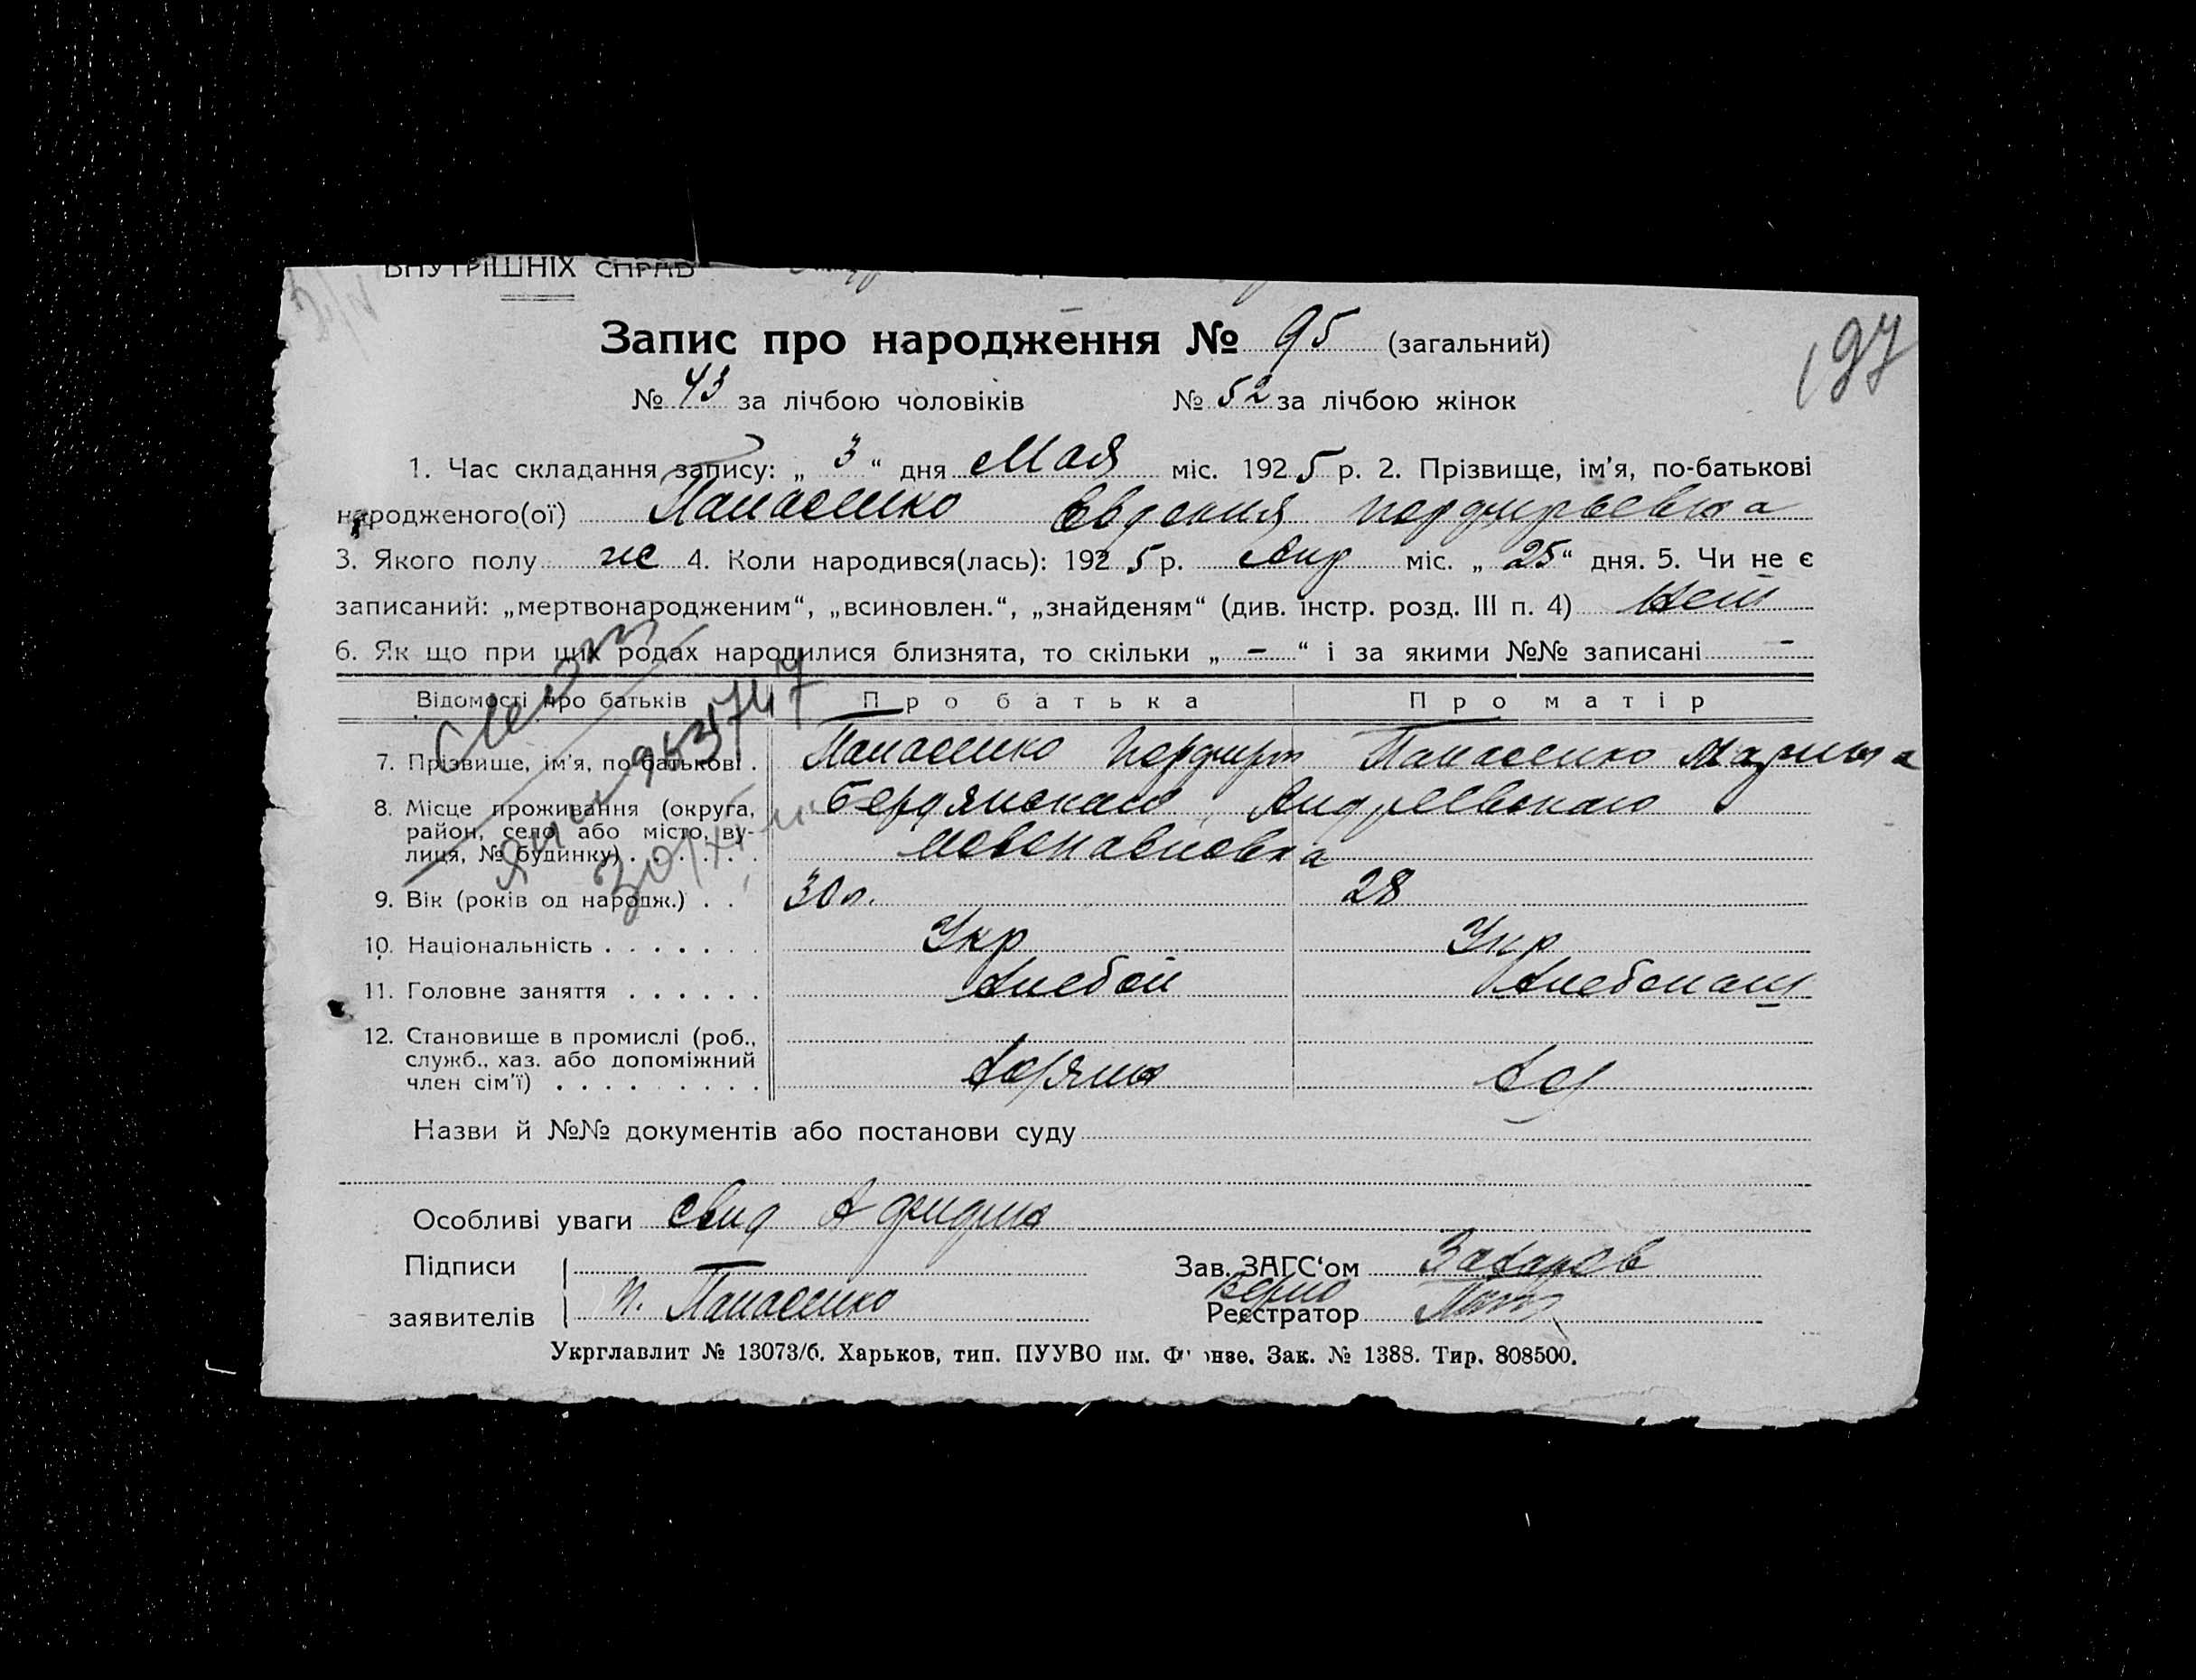 ВНУТРІШНІХ СПРАВ
197
Запис про народження № 95 (загальний)
№ 43 за лічбою чоловіків № 52 за лічбою жінок
1. Час складання запису: „ 3 “ дня Мая міс. 1925 р. 2. Прізвище, ім'я, по-батькові
народженого(ої) Панасенко Евдокия Порфирьевна
3. Якого полу же 4. Коли народився(лась): 1925 р. Апр міс. „ 25 “ дня. 5. Чи не є
записаний: „мертвонародженим“, „всиновлен.“, „знайденям“ (див. інстр. розд. III п. 4) Нет
6. Як що при цих родах народилися близнята, то скільки „ – “ і за якими №№ записані –
Відомості про батьків Про батька Про матір
7. Прізвище, ім'я, по-батькові . Панасенко Порфирий Панасенко Марина
8. Місце проживання (округа, Бердянская Андреевская
район, село або місто, ву-
лиця, № будинку) . . . . . . Новопавловка
9. Вік (років од народж.) . . 30 л. 28
10. Національність . . . . . . . Укр Укр
11. Головне заняття . . . . . . Хлебоп Хлебопаш
12. Становище в промислі (роб.,
служб., хаз. або допоміжний
член сім'ї) . . . . . . . . . Хозяин
Назви й №№ документів або постанови суду
Особливі уваги
Підписи Зав. ЗАГС'ом Захаров
Верно
заявителів П. Панасенко Реєстратор
Укрглавлит № 13073/б. Харьков, тип. ПУУВО им. Фрунзе. Зак. № 1388. Тир. 808500.